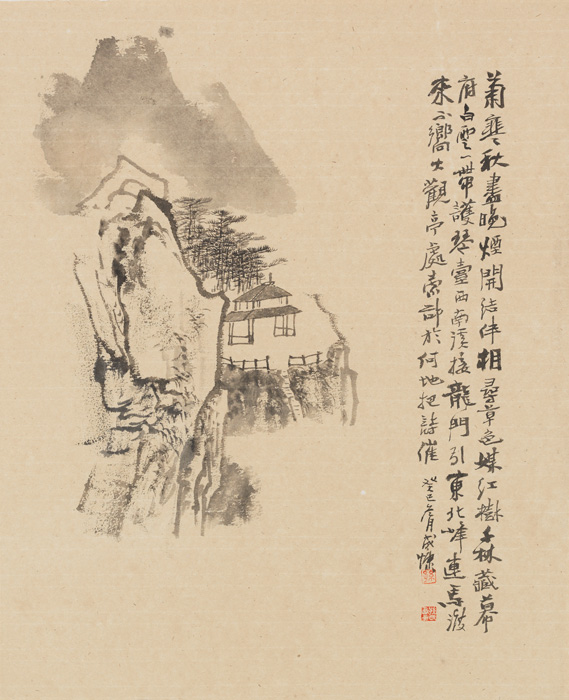 菊寒秋盡晚煙開結伴相尋草色媒紅樹千林藏幕
府白雲一帶護琴臺西南溪接龍門引東北峰連馬渡
來不嚮大觀亭處索於何地把詩催 癸巳月成